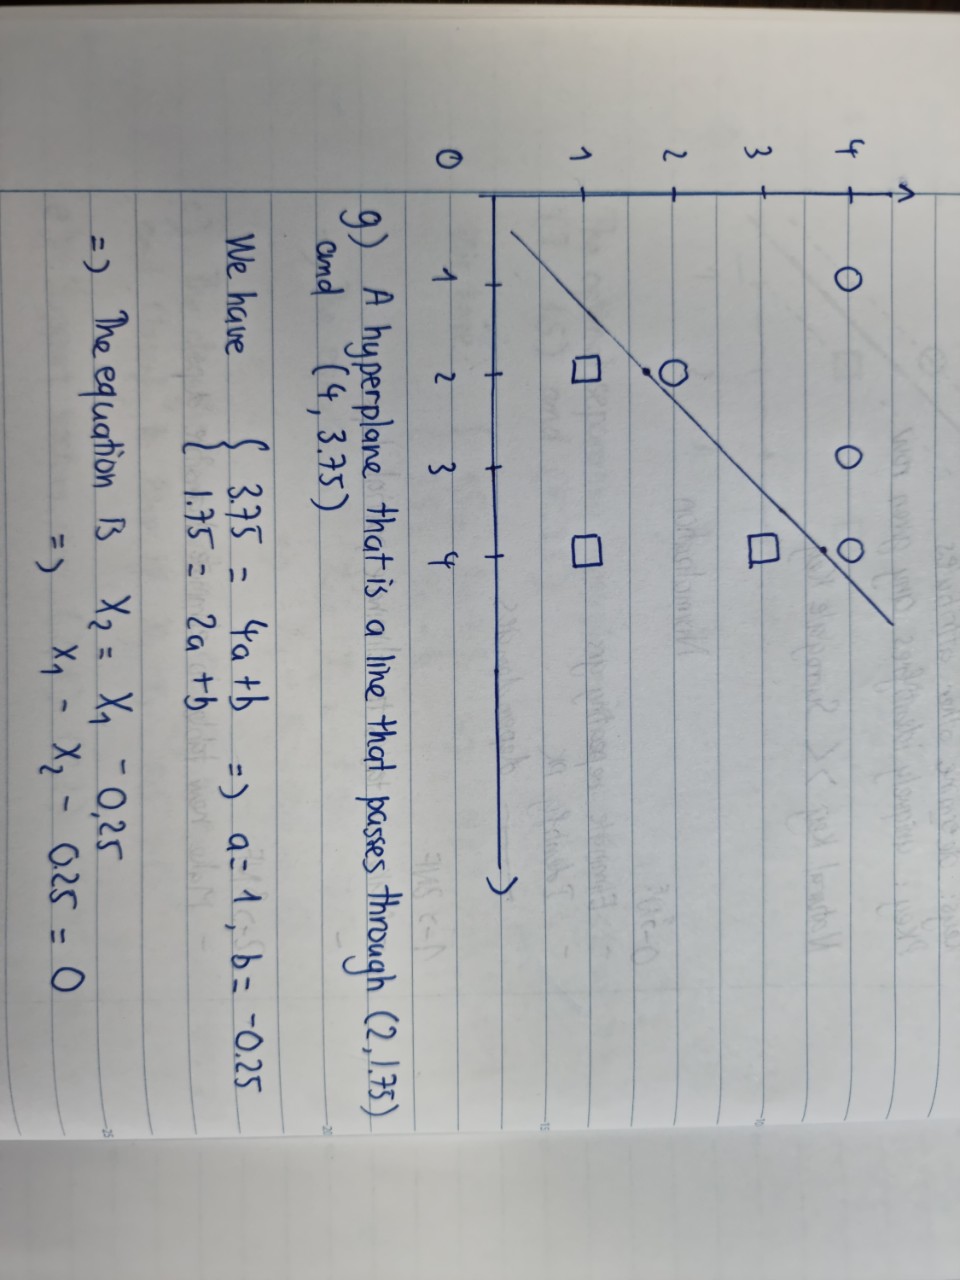 4
3
2
1
0 1 2 3 4
g) A hyperplane that is a line that passes through (2,1.75)
and (4, 3.75)
We have { 3.75 = 4a + b => a = 1, b = -0.25
1.75 = 2a + b
=> The equation is X₂ = X₁ - 0,25
=> X₁ - X₂ - 0.25 = 0